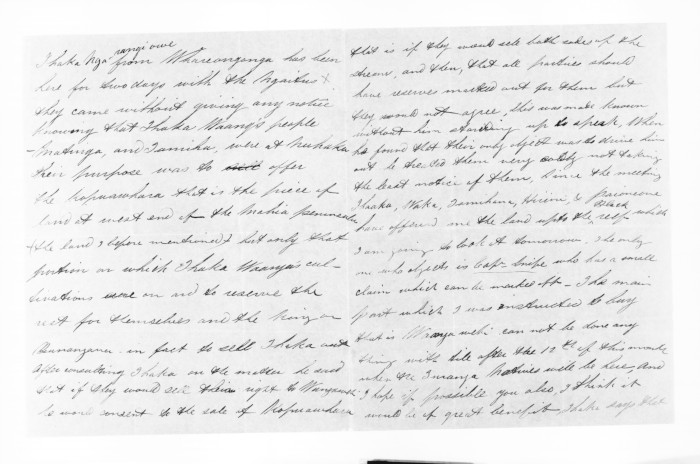 Ihaka Nga rangi owe from Whareongonga has been
here for two days with the Ngaitus
they came without giving any notice
knowing that Ihaka Waanga's people
Matenga, and Tamika, were at
their purpose was to offer
the Kopuawhara that is the piece of
land at west end of the Mahia peninsula
(the land I before mentioned) but only that
portion on which Ihaka Waanga's cul-
tivations were on and to reserve the
rest for themselves and the King or
Runanganui in fact to sell Ihaka out
After consulting Ihaka on the matter he said
that if they would sell their right to
he would consent to the sale of Kopuawhara
that is if they would sell both sides up the
stream, and then, that all parties should
have reserves marked out for them but
they would not agree, this was made known
without him standing up to speak, When
he found that their only object was to drive him
out he treated them very coldly not taking
the least notice of them, Since the meeting
Ihaka, Waka, Tamihana, Hirini, &
have offered me the land up to the black reef which
I am going to look at tomorrow, The only
one who objects is who has a small
claim which can be marked off - The main
part which I was instructed to buy
that is can not be done any
thing with till after the 12th of this month
when the Natives will be here, and
I hope if possible you also, I think it
would be of great benefit Ihaka says that